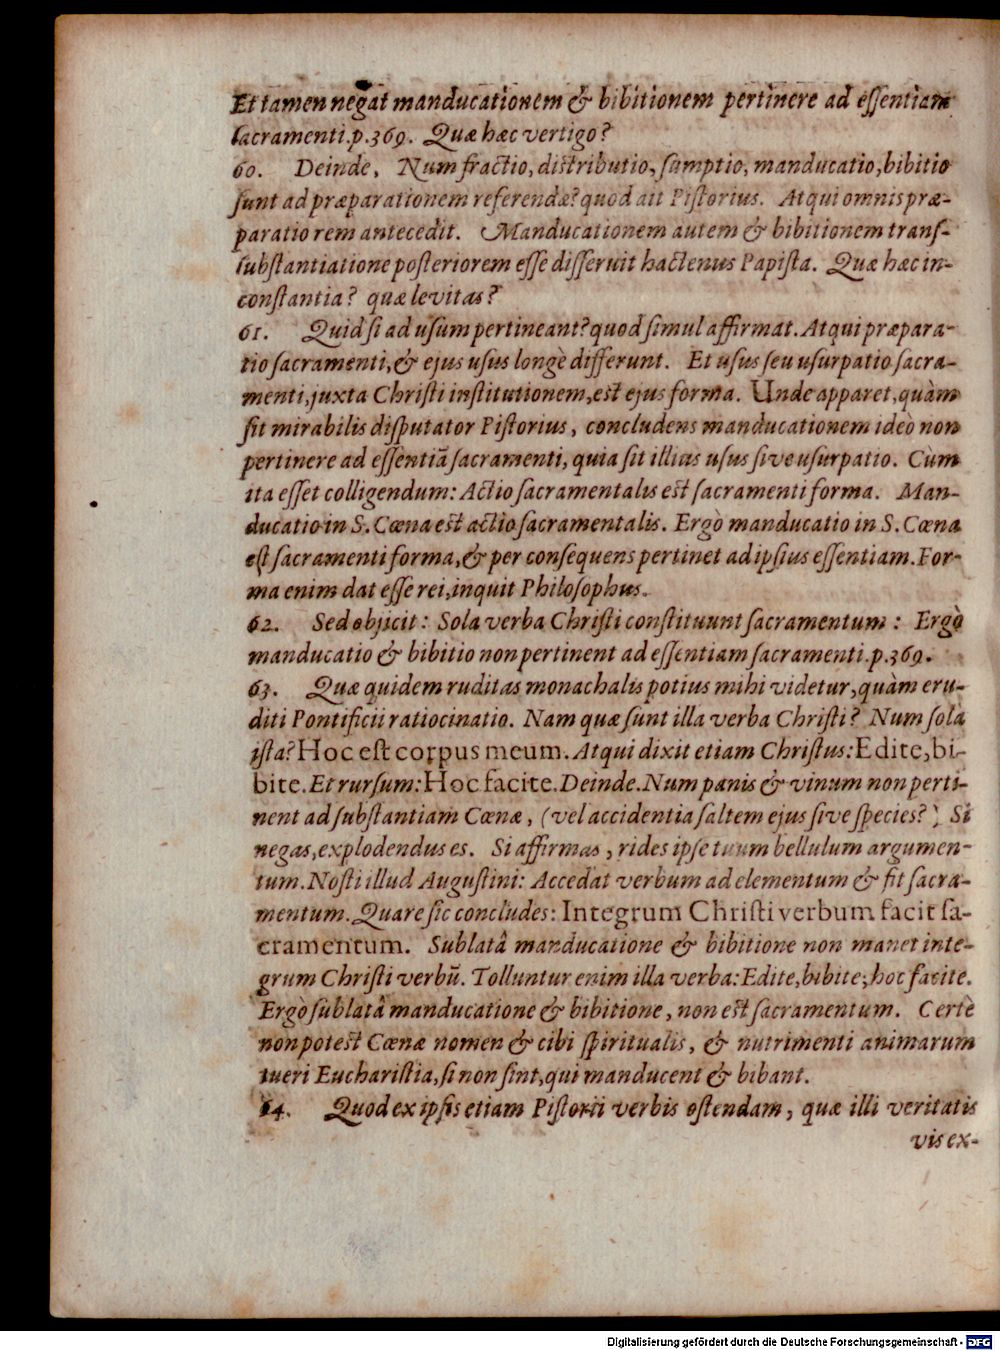 Et tamen negat manducationem & bibitionem pertinere ad eſſentiam
ſacramenti. p. 369. Quæ hæc vertigo?
60. Deinde. Num fractio, distributio, ſumptio, manducatio, bibitio
ſunt ad præparationem referendæ? quod ait Piſtorius. Atqui omnis præ-
paratio rem antecedit. Manducationem autem & bibitionem tranſ-
ſubſtantiatione poſteriorem eſſe diſſeruit hactenus Papiſta. Quæ hæc in-
conſtantia? quæ levitas?
61. Quid ſi ad uſum pertineant? quod ſimul affirmat. Atqui præpara-
tio ſacramenti, & ejus uſus longè differunt. Et uſus ſeu uſurpatio ſacra-
menti, juxta Chriſti inſtitutionem, est ejus forma. Unde apparet, quàm
ſit mirabilis diſputator Piſtorius, concludens manducationem ideò non
pertinere ad eſſentiā ſacramenti, quia ſit illius uſus ſive uſurpatio. Cum
ita eſſet colligendum: Actio ſacramentalis est ſacramenti forma. Man-
ducatio in S. Cœna est actio ſacramentalis. Ergò manducatio in S. Cœna
eſt ſacramenti forma, & per conſequens pertinet ad ipſius eſſentiam. For-
ma enim dat eſſe rei, inquit Philoſophus.
62. Sed objicit: Sola verba Chriſti conſtituunt ſacramentum: Ergò
manducatio & bibitio non pertinent ad eſſentiam ſacramenti. p. 369.
63. Quæ quidem ruditas monachalis potius mihi videtur, quàm eru-
diti Pontificii ratiocinatio. Nam quæ ſunt illa verba Chriſti? Num ſola
iſta? Hoc est corpus meum. Atqui dixit etiam Chriſtus: Edite, bi-
bite. Et rurſum: Hoc facite. Deinde. Num panis & vinum non perti-
nent ad ſubſtantiam Cœnæ, (vel accidentia ſaltem ejus ſive ſpecies?) Si
negas, explodendus es. Si affirmas, rides ipſe tuum bellulum argumen-
tum. Noſti illud Auguſtini: Accedat verbum ad elementum & fit ſacra-
mentum. Quare ſic concludes: Integrum Chriſti verbum facit ſa-
cramentum. Sublatâ manducatione & bibitione non manet inte-
grum Chriſti verbū. Tolluntur enim illa verba: Edite, bibite; hoc facite.
Ergò ſublatâ manducatione & bibitione, non est ſacramentum. Certè
non potest Cœnæ nomen & cibi ſpiritualis, & nutrimenti animarum
tueri Euchariſtia, ſi non ſint, qui manducent & bibant.
64. Quod ex ipſis etiam Piſtorii verbis oſtendam, quæ illi veritatis
vis ex-
Digitalisierung gefördert durch die Deutsche Forschungsgemeinschaft - DFG